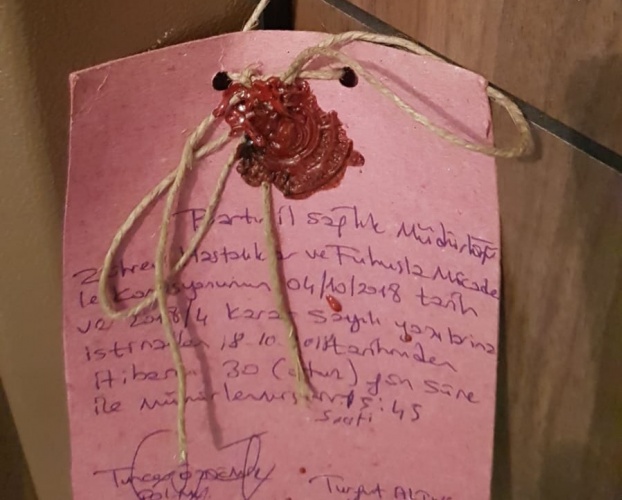 Bartın İl Sağlık Müdürlüğü
Zührevi Hastalıklar ve Fuhuşla Mücade
le Komisyonunun 04/10/2018 tarih
ve 2018/4 Karar Sayılı yazıları
istinaden 18.10.2018 tarihinden
itibaren 30 (otuz) gün süre
ile mühürlenmiştir. 15:45
Saati
Turgut